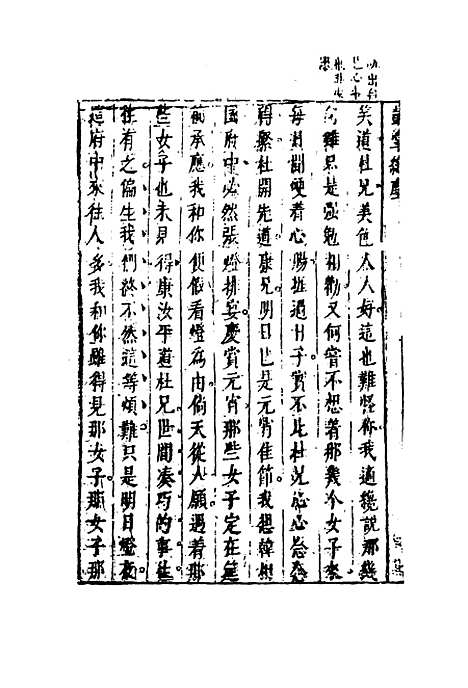 笑道杜兄美色人人好這也難怪你我適纔說那幾
句雖只是强勉相勸又何嘗不想着那幾个女子來
每封聞哽着心腸捱過日子實不比杜兄放心忿忿
得緊杜開先道康兄明日也是元宵佳節我想韓相
國府中必然張燈排宴慶賞元宵那些女子定在筵
前承應我和你便假看燈為由倘天從人願遇着那
些女子也未見得康汝平道杜兄世間湊巧的事往
往有之偏生我們終不然這等煩難只是明日燈夜
這府中來往人多我和你雖得見那女子那女子那